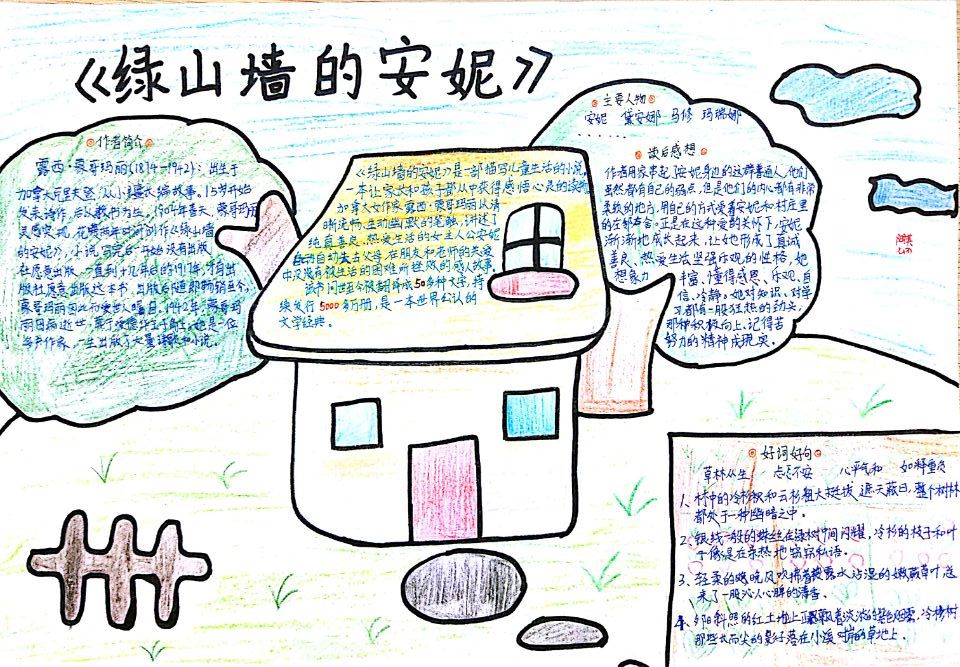 《绿山墙的安妮》
作者简介
露西·蒙哥玛丽(1874—1942)：出生于
加拿大
从小喜欢编故事。15岁开始
发表诗作，后以教书为生，1904年春天，蒙哥玛丽
灵感突现，花两年时间创作《绿山墙
的安妮》，小说写完，开始没有出版
社愿意出版
社愿意出版这本书，出版后随即畅销至今，
蒙哥玛丽因此而
1942年，蒙哥玛
丽因病逝世
她是一位
多产作家，一生出版了大量诗歌和小说。
《绿山墙的安妮》是一部描写儿童生活的小说，
一本让家长和孩子都从中获得感悟心灵的读物
加拿大女作家露西·蒙哥玛丽以清
晰流畅、生动幽默的笔触，讲述了
纯真善良、热爱生活的女主人公安妮
自幼失去父母，在朋友和老师的关爱
中
被生活的困难所挫败的感人故事。
该书问世至今被翻译成50多种文字，持
续发行5000多万册，是一本世界公认的
文学经典。
主要人物
安妮 黛安娜 马修 玛瑞娜
······
读后感想
作者用家串起了安妮身边的这群普通人，他们
虽然都有自己的弱点，但是他们的内心都有非常
柔软的地方，用自己的方式爱着安妮和村庄里
的左邻右舍。正是在这种爱的关怀下，安妮
渐渐地成长起来，让她形成了真诚
善良、热爱生活坚强乐观的性格，她
想象力
丰富、懂得感恩、乐观、自
信、冷静。她对知识、对学
习都有一股狂热的劲头，
那种积极向上，记得苦
努力的精神成现实。
好词好句
草林丛生 忐忑不安 心平气和 如释重负
1、林中的冷杉枞和云杉粗大挺拔，遮天蔽日，整个树林
都处于一种幽暗之中。
2、银线一般的蛛丝在绿树中间闪耀，冷杉的枝子和叶
子像是在亲热地窃窃私语。
3、轻柔的晚风吹拂着被露水沾湿的嫩蕨草叶送
来了一股沁人心脾的清香。
4、夕阳斜照的红土地上正飘着淡淡的
冷杉树
那些长而尖的影子落在小溪对岸的草地上。